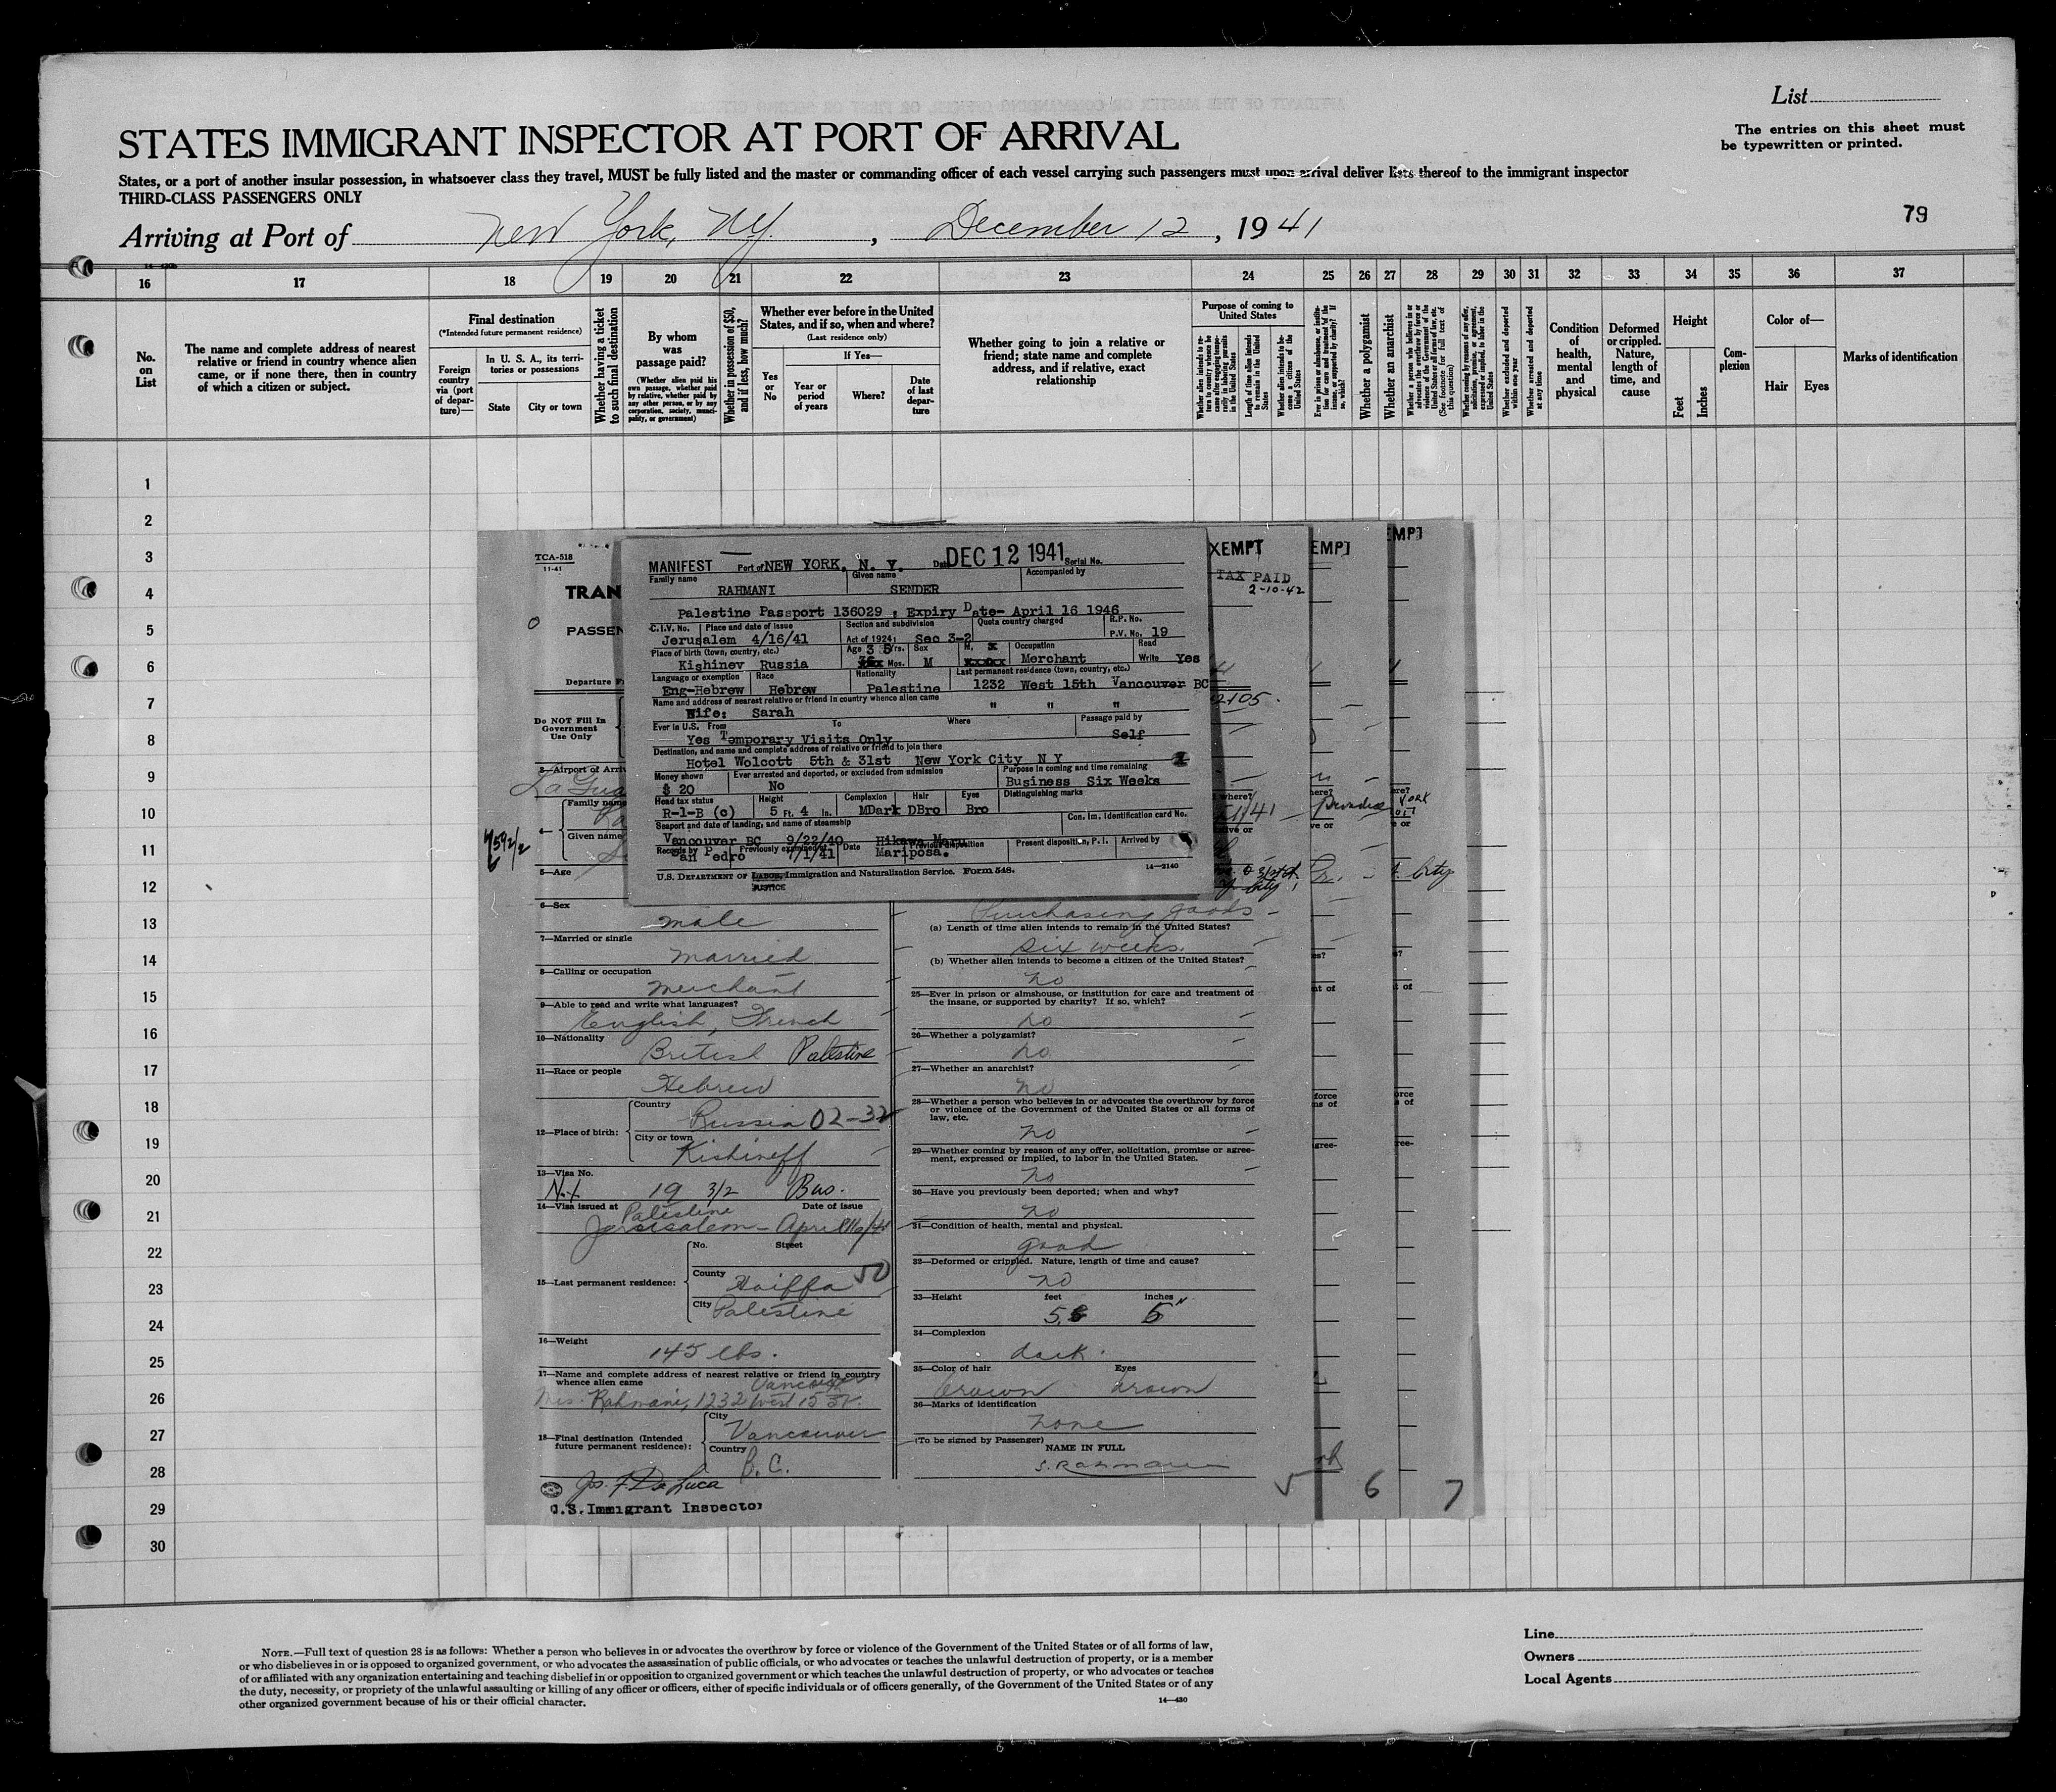 List
STATES IMMIGRANT INSPECTOR AT PORT OF ARRIVAL
The entries on this sheet must
be typewritten or printed.
States, or a port of another insular possession, in whatsoever class they travel, MUST be fully listed and the master or commanding officer of each vessel carrying such passengers must upon arrival deliver lists thereof to the immigrant inspector
THIRD-CLASS PASSENGERS ONLY
79
Arriving at Port of New York, NY. , December 12, 1941
16 17 18 19 20 21 22 23 24 25 26 27 28 29 30 31 32 33 34 35 36 37
No. on List
The name and complete address of nearest
relative or friend in country whence alien
came, or if none there, then in country
of which a citizen or subject.
Final destination
(*Intended future permanent residence)
Foreign country via (port of departure)—
In U. S. A., its territories or possessions
State
City or town
Whether having a ticket to such final destination
By whom was passage paid?
(Whether alien paid his own passage, whether paid by relative, whether paid by any other person, or by any corporation, society, municipality, or government)
Whether in possession of $50, and if less, how much?
Whether ever before in the United States, and if so, when and where?
(Last residence only)
If Yes—
Yes or No
Year or period of years
Where?
Date of last departure
Whether going to join a relative or
friend; state name and complete
address, and if relative, exact
relationship
Purpose of coming to United States
Whether alien intends to return to country whence he came after engaging temporarily in laboring pursuits in the United States
Length of time alien intends to remain in the United States
Whether alien intends to become a citizen of the United States
Ever in prison or almshouse, or institution for care and treatment of the insane, or supported by charity? If so, which?
Whether a polygamist
Whether an anarchist
Whether a person who believes in or advocates the overthrow by force or violence of the Government of the United States or all forms of law, etc. (See footnote for full text of this question)
Whether coming by reasons of any offer, solicitation, promise, or agreement, expressed or implied, to labor in the United States
Whether excluded and deported within one year
Whether arrested and deported at any time
Condition of health, mental and physical
Deformed or crippled. Nature, length of time, and cause
Height
Feet
Inches
Complexion
Color of—
Hair
Eyes
Marks of identification
1
2
3
4
5
6
7
8
9
10
11
12
13
14
15
16
17
18
19
20
21
22
23
24
25
26
27
28
29
30
TCA-518
11-41
TRAN
PASSEN
Departure F
Do NOT Fill In
Government
Use Only
MANIFEST Port of NEW YORK, N. Y. Date DEC 12 1941 Serial No.
Family name Given name Accompanied by
RAHMANI SENDER
Palestine Passport 136029 , Expiry Date- April 16 1946
C.I.V. No. Place and date of issue Section and subdivision Quota country charged R.P. No.
Jerusalem 4/16/41 Act of 1924: Sec 3-2 P.V. No. 19
Place of birth (town, country, etc.) Age 35 Yrs. Sex M. x Occupation Read
Kishinev Russia Mos. M Merchant Write Yes
Language or exemption Race Nationality Last permanent residence (town, country, etc.)
Eng-Hebrew Hebrew Palestine 1232 West 15th Vancouver BC
Name and address of nearest relative or friend in country whence alien came
Wife: Sarah " " "
Ever in U.S. From To Where Passage paid by
Yes Temporary Visits Only Self
Destination, and name and complete address of relative or friend to join there
Hotel Wolcott 5th & 31st New York City N Y
Money shown Ever arrested and deported, or excluded from admission Purpose in coming and time remaining
$ 20 No Business Six Weeks
Head tax status Height Complexion Hair Eyes Distinguishing marks
R-1-B (c) 5 Ft. 4 In. MDark DBro Bro
Seaport and date of landing, and name of steamship Con. Im. Identification card No.
Vancouver BC 9/22/40 Hikawa Maru
Records by Previously examined at Date Previous disposition Present disposition, P. I. Arrived by
San Pedro 7/1/41 Mariposa.
U.S. DEPARTMENT OF LABOR, Immigration and Naturalization Service. Form 548. 14—2140
JUSTICE
XEMPT
EMPT
EMPT
TAX PAID
2-10-42
2105
3—Airport of Arri
La Gua
Family name
Given name
5—Age
6—Sex
male
7—Married or single
Married
8—Calling or occupation
Merchant
9—Able to read and write what languages?
English, French
10—Nationality
British Palestine
11—Race or people
Hebrew
12—Place of birth:
Country
Russia 02-32
City or town
Kishineff
13—Visa No.
19 3/2 Bus.
14—Visa issued at Date of issue
Palestine
Jerusalem - April 16/41
15—Last permanent residence:
No. Street
County
Haiffa 50
City
Palestine
16—Weight
145 lbs.
17—Name and complete address of nearest relative or friend in country
whence alien came
Vancouver
Mrs. Rahmani, 1232 West 15 St.
18—Final destination (Intended
future permanent residence):
City
Vancouver
Country
B.C.
Jos. F. De Luca
U.S. Immigrant Inspector
Purchasing goods
(a) Length of time alien intends to remain in the United States?
Six weeks.
(b) Whether alien intends to become a citizen of the United States?
no
25—Ever in prison or almshouse, or institution for care and treatment of
the insane, or supported by charity? If so, which?
no
26—Whether a polygamist?
no
27—Whether an anarchist?
no
28—Whether a person who believes in or advocates the overthrow by force
or violence of the Government of the United States or all forms of
law, etc.
no
29—Whether coming by reason of any offer, solicitation, promise or agree-
ment, expressed or implied, to labor in the United States.
no
30—Have you previously been deported; when and why?
no
31—Condition of health, mental and physical.
good
32—Deformed or crippled. Nature, length of time and cause?
no
33—Height feet inches
34—Complexion
dark.
35—Color of hair Eyes
brown brown
36—Marks of identification
none
(To be signed by Passenger)
NAME IN FULL
S. Rahmani
5 6 7
NOTE.—Full text of question 28 is as follows: Whether a person who believes in or advocates the overthrow by force or violence of the Government of the United States or of all forms of law,
or who disbelieves in or is opposed to organized government, or who advocates the assassination of public officials, or who advocates or teaches the unlawful destruction of property, or is a member
of or affiliated with any organization entertaining and teaching disbelief in or opposition to organized government or which teaches the unlawful destruction of property, or who advocates or teaches
the duty, necessity, or propriety of the unlawful assaulting or killing of any officer or officers, either of specific individuals or of officers generally, of the Government of the United States or of any
other organized government because of his or their official character.
14—430
Line
Owners
Local Agents